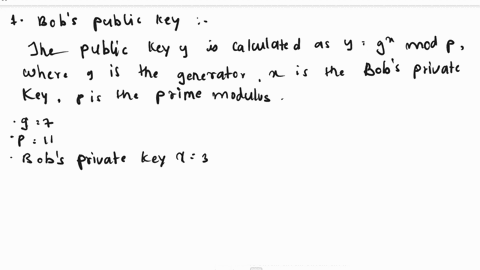 1. Bob's public key :-
The public key y is calculated as y = g^x mod p,
where g is the generator, x is the Bob's private
key, p is the prime modulus.
· g = 7
· p = 11
· Bob's private key x = 3